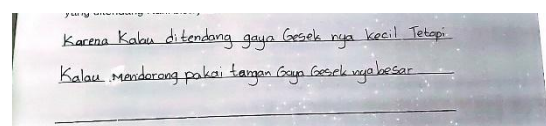 Karena Kalau ditendang gaya Gesek nya kecil Tetapi
Kalau Mendorong pakai tangan Gaya Gesek nya besar